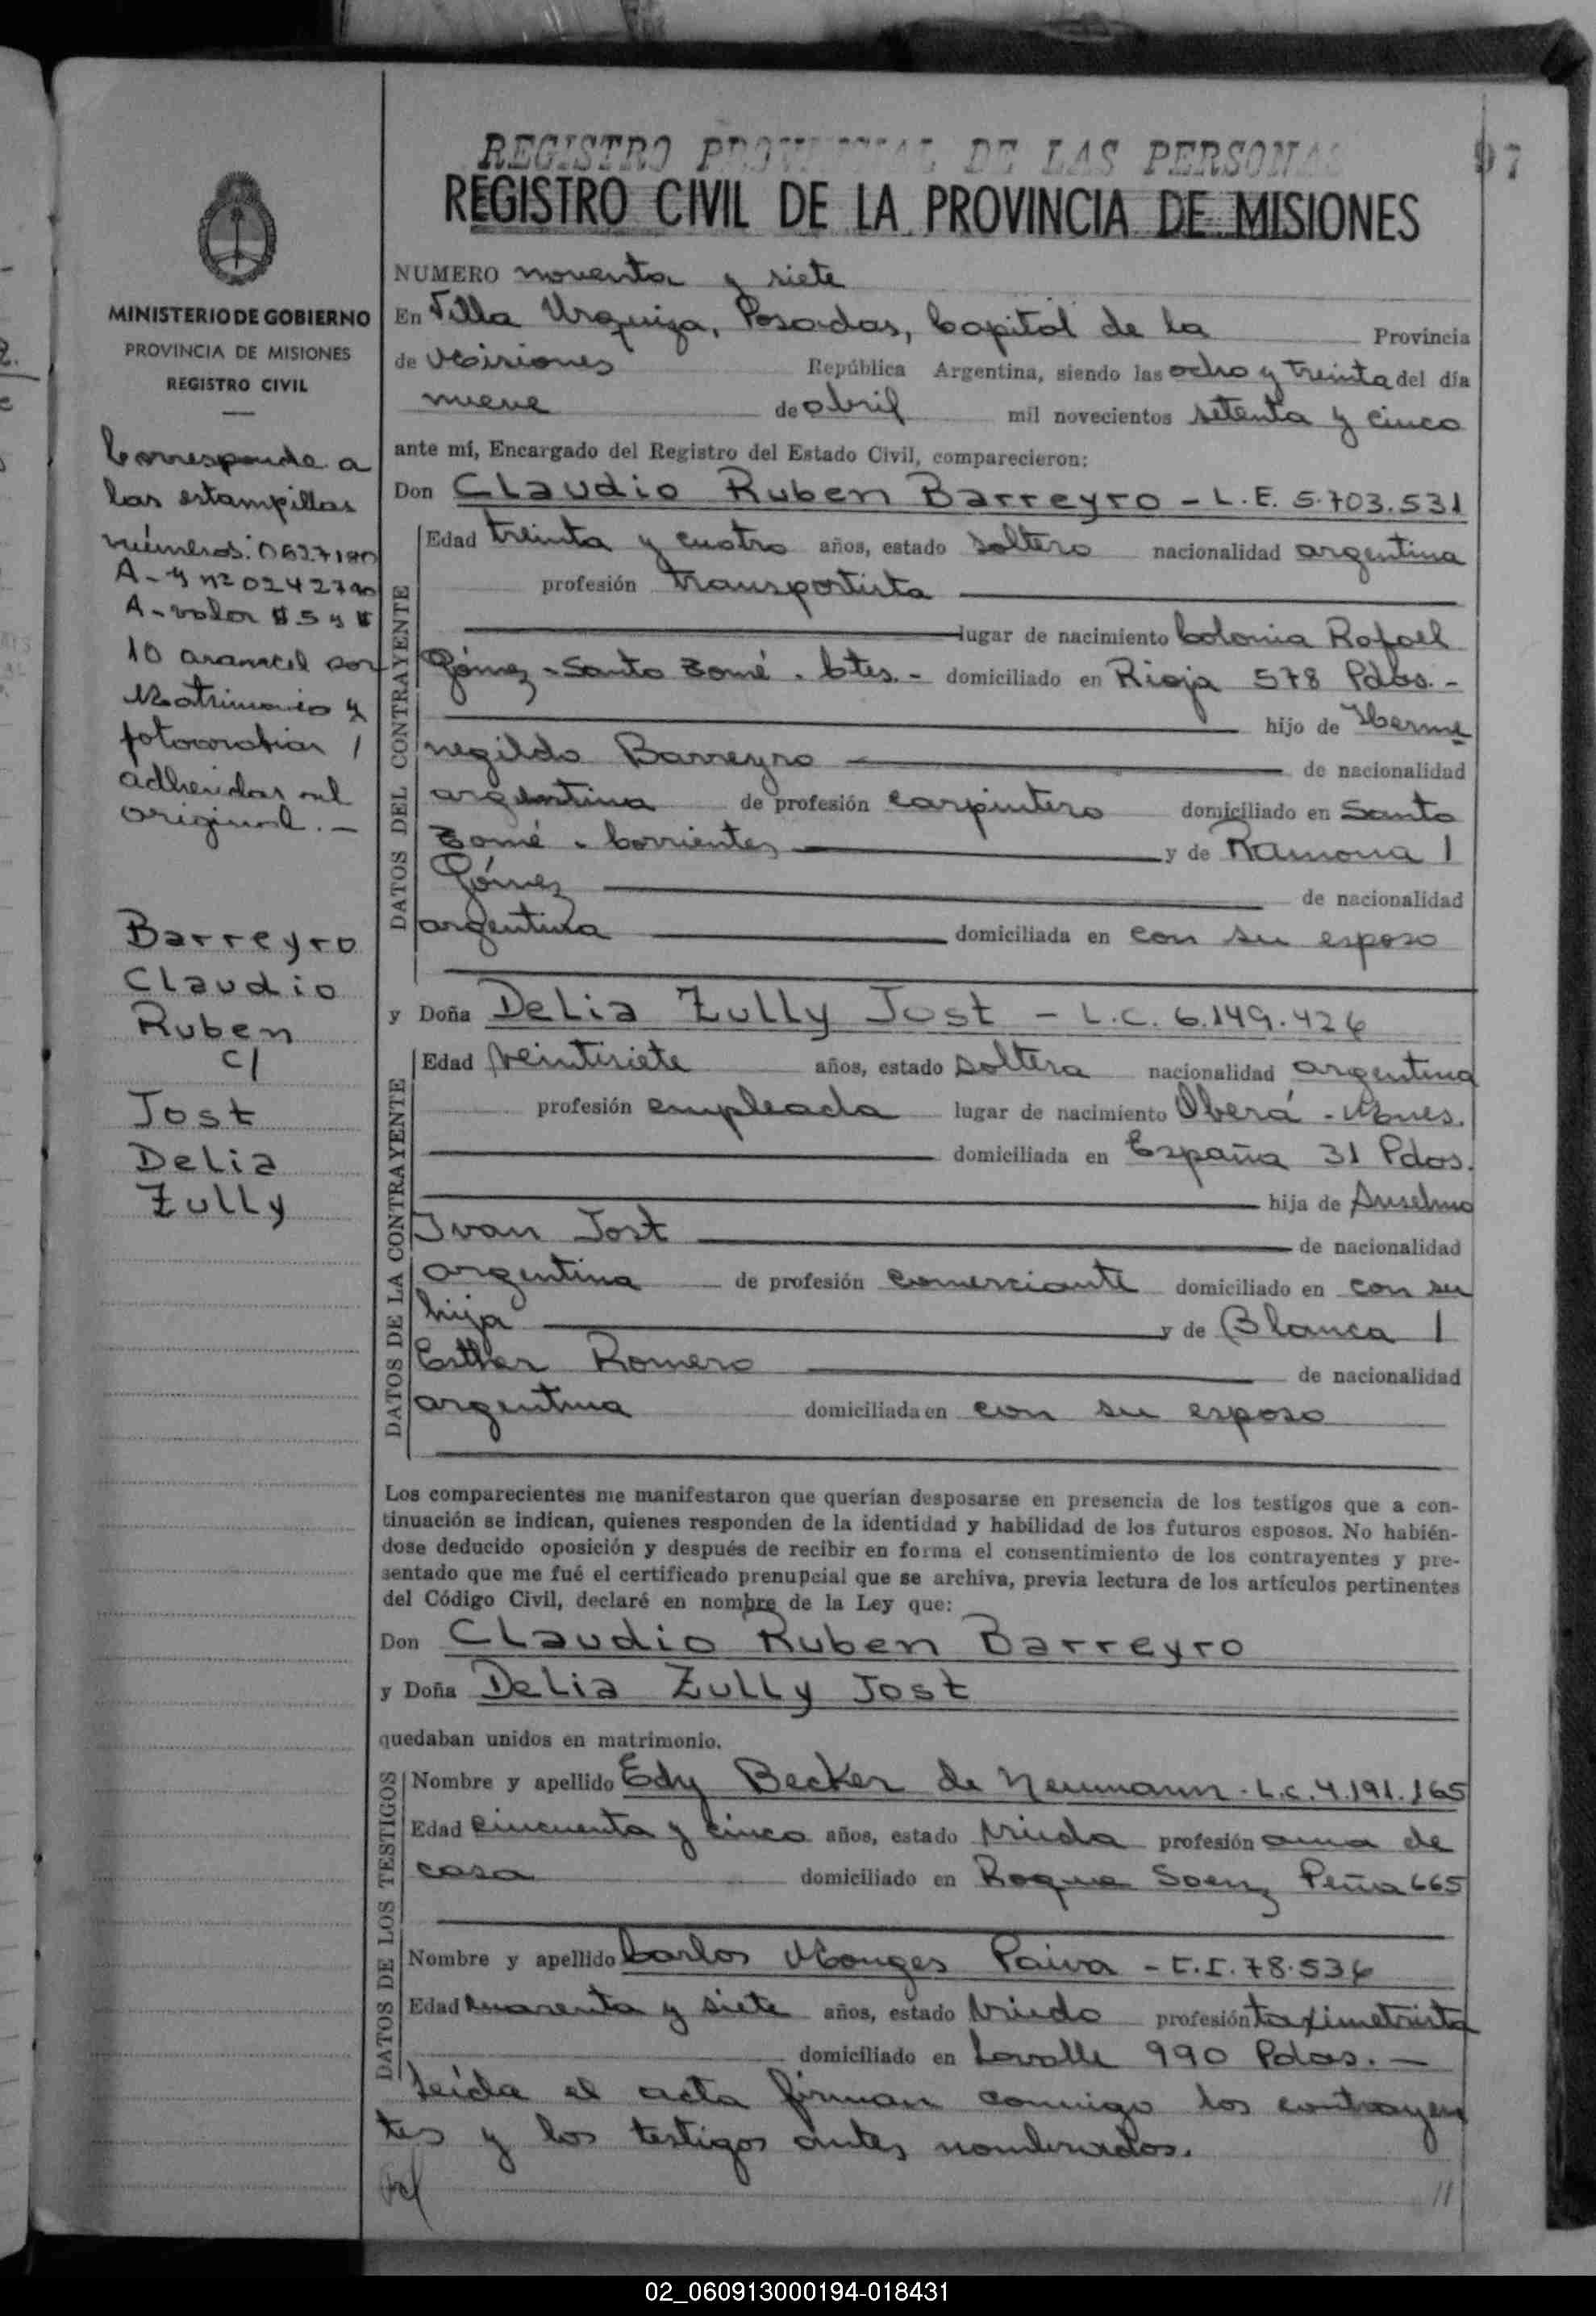 REGISTRO PROVINCIAL DE LAS PERSONAS
97
REGISTRO CIVIL DE LA PROVINCIA DE MISIONES
MINISTERIO DE GOBIERNO
PROVINCIA DE MISIONES
REGISTRO CIVIL
Corresponde a
las estampillas
números: 0627180
A - y nº 0242790
A - valor $ 5 y $
10 arancel por
Matrimonio y
fotocopias /
adheridas al
original. -
Barreyro
Claudio
Ruben
c/
Jost
Delia
Zully
NUMERO noventa y siete
En Villa Urquiza, Posadas, Capital de la Provincia
de Misiones República Argentina, siendo las ocho y treinta del día
nueve de abril mil novecientos setenta y cinco
ante mí, Encargado del Registro del Estado Civil, comparecieron:
Don Claudio Ruben Barreyro - L.E. 5.703.531
DATOS DEL CONTRAYENTE
Edad treinta y cuatro años, estado soltero nacionalidad argentina
profesión transportista
lugar de nacimiento Colonia Rafael
Gómez - Santo Tomé - Ctes. - domiciliado en Rioja 578 Pdas. -
hijo de Herme
negildo Barreyro de nacionalidad
argentina de profesión carpintero domiciliado en Santo
Tomé - Corrientes y de Ramona /
Gómez de nacionalidad
argentina domiciliada en con su esposo
y Doña Delia Zully Jost - L.C. 6.149.426
DATOS DE LA CONTRAYENTE
Edad veintisiete años, estado soltera nacionalidad argentina
profesión empleada lugar de nacimiento Oberá - Mnes.
domiciliada en España 31 Pdas.
hija de Anselmo
Ivan Jost de nacionalidad
argentina de profesión comerciante domiciliado en con su
hija y de Blanca /
Esther Romero de nacionalidad
argentina domiciliada en con su esposo
Los comparecientes me manifestaron que querían desposarse en presencia de los testigos que a con-
tinuación se indican, quienes responden de la identidad y habilidad de los futuros esposos. No habién-
dose deducido oposición y después de recibir en forma el consentimiento de los contrayentes y pre-
sentado que me fué el certificado prenupcial que se archiva, previa lectura de los artículos pertinentes
del Código Civil, declaré en nombre de la Ley que:
Don Claudio Ruben Barreyro
y Doña Delia Zully Jost
quedaban unidos en matrimonio.
DATOS DE LOS TESTIGOS
Nombre y apellido Edy Becker de Neumann - L.C. 4.191.165
Edad cincuenta y cinco años, estado viuda profesión ama de
casa domiciliado en Roque Saenz Peña 665
Nombre y apellido Carlos Monges Paiva - C.I. 78.536
Edad cuarenta y siete años, estado viudo profesión taximetrista
domiciliado en Lavalle 990 Pdas. -
Leída el acta firman conmigo los contrayen
tes y los testigos antes nombrados.
//
02_060913000194-018431